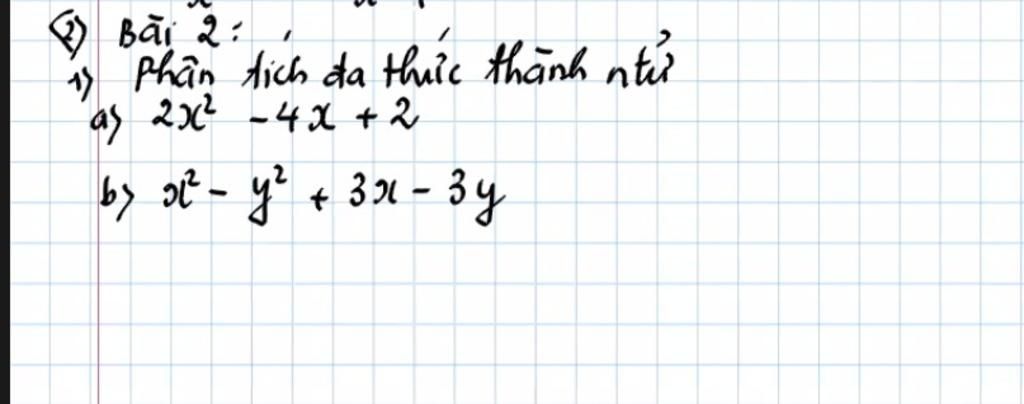 (2) Bài 2:
1) Phân tích đa thức thành ntử
a) 2x² - 4x + 2
b) x² - y² + 3x - 3y